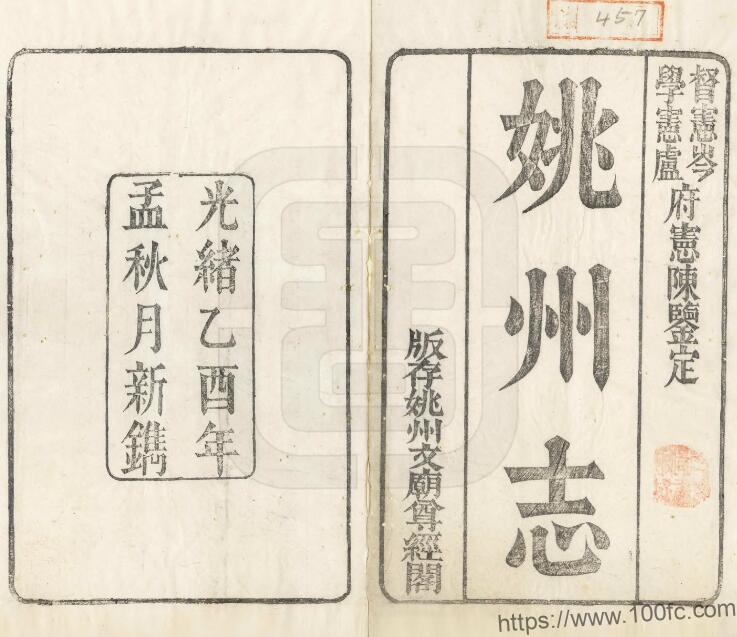 457
督憲岑
學憲盧
府憲陳鑒定
姚州志
版存姚州文廟尊經閣
光緒乙酉年
孟秋月新鐫
https://www.100fc.com